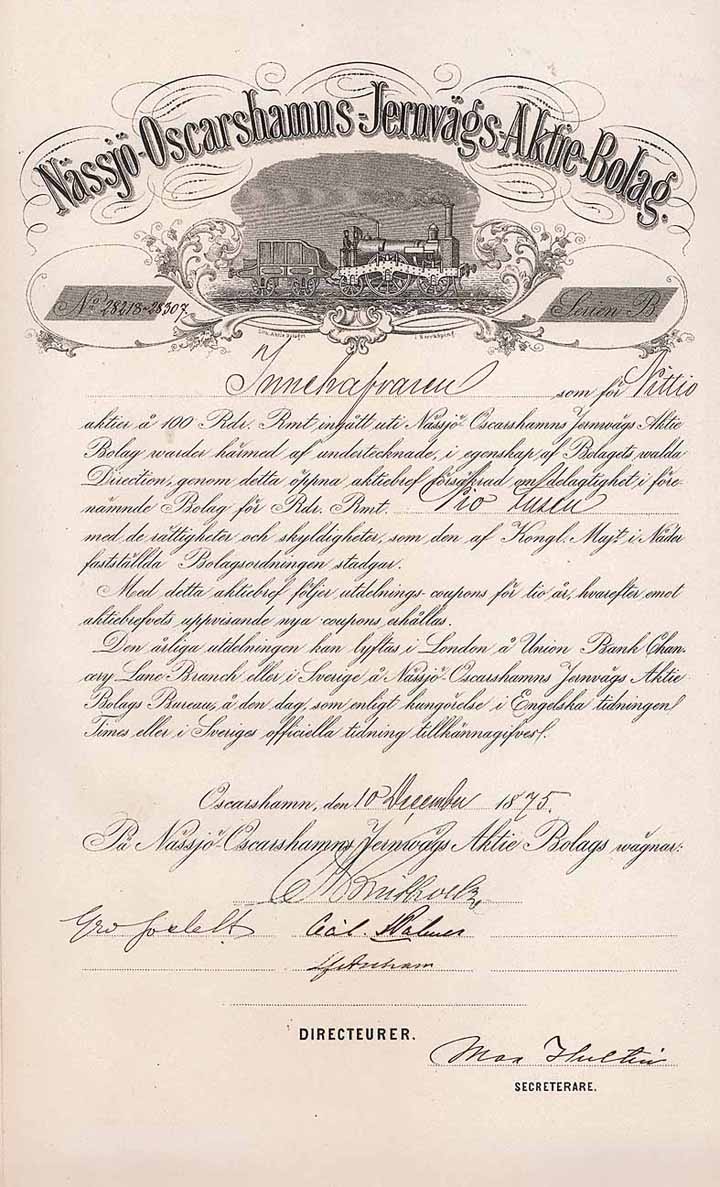 Nässjö-Oscarshamns-Jernvägs-Aktie-Bolag.
No 28218-28307. Serien B.
Innehafvaren som för Nittio
aktier à 100 Rdr. Rmt ingått uti Nässjö-Oscarshamns Jernvägs Aktie
Bolag warder härmed af undertecknade, i egenskap af Bolagets walda
Direction, genom detta öppna aktiebref försäkrad om delagtighet i före-
nämnde Bolag för Rdr. Rmt. Nio tusen
med de rättigheter och skyldigheter, som den af Kongl. Maj:t i Nåder
fastställda Bolagsordningen stadgar.
Med detta aktiebref följer utdelnings-coupons för tio år, hvarefter emot
aktiebrefvets uppvisande nya coupons erhållas.
Den årliga utdelningen kan lyftas i London å Union Bank Chan-
cery Lane Branch eller i Sverige å Nässjö-Oscarshamns Jernvägs Aktie
Bolags Bureau, å den dag, som enligt kungörelse i Engelska tidningen
Times eller i Sveriges officiella tidning tillkännagifves.
Oscarshamn, den 10 December 1875.
På Nässjö-Oscarshamns Jernvägs Aktie Bolags wägnar:
DIRECTEURER.
Max Hultin
SECRETERARE.